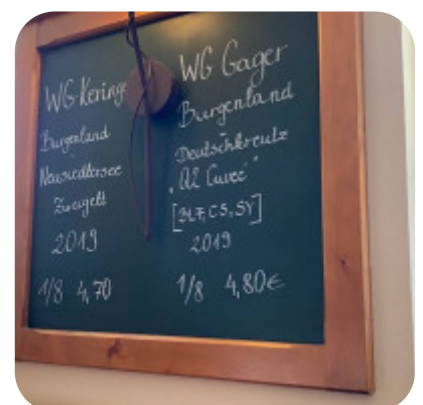 WG Keringer
Burgenland
Neusiedlersee
Zweigelt
2019
1/8 4,70
WG Gager
Burgenland
Deutschkreutz
"Q2 Cuveé"
[BLF, CS, SY]
2019
1/8 4,80€